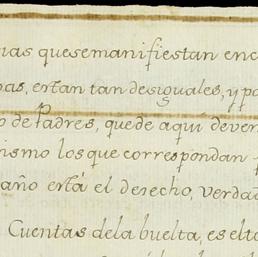 uas quesemanifiestan enc
pas, estan tan desiguales, y po
o de Padres, quede aqui deven
ismo los que correspondan
año está el derecho, verdad
Cuentas dela buelta, es elto